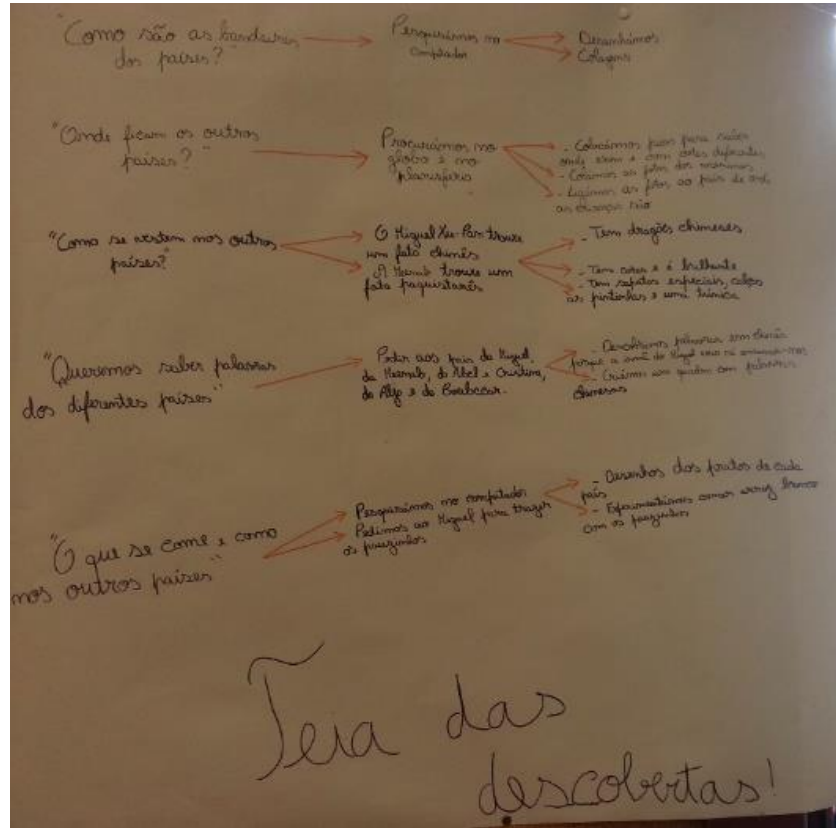 "Como são as bandeiras
dos países?"
Pesquisámos no
computador
Desenhámos
Colagens
"Onde ficam os outros
países?"
Procurámos no
globo e no
planisfério
- Colocámos para
onde e com cores diferentes
- Colámos as fotos dos meninos
- Ligámos as fotos ao país de onde
as crianças são
"Como se vestem nos outros
países?"
O Miguel trouxe
um fato chinês
A trouxe um
fato paquistanês
- Tem dragões chineses
- Tem cores e é brilhante
- Tem sapatos especiais, calças
às pintinhas e uma túnica
"Queremos saber palavras
dos diferentes países"
Pedir aos pais do Miguel,
da do Abel e Cristina,
do e do
- palavras em chinês
porque a do Miguel veio cá ensinar-nos
- Criámos um quadro com palavras
chinesas
"O que se come e como
nos outros países"
Pesquisámos no computador
Pedimos ao Miguel para trazer
os pauzinhos
- Desenhos dos pratos de cada
país
- Experimentámos comer arroz branco
com os pauzinhos
Teia das
descobertas!